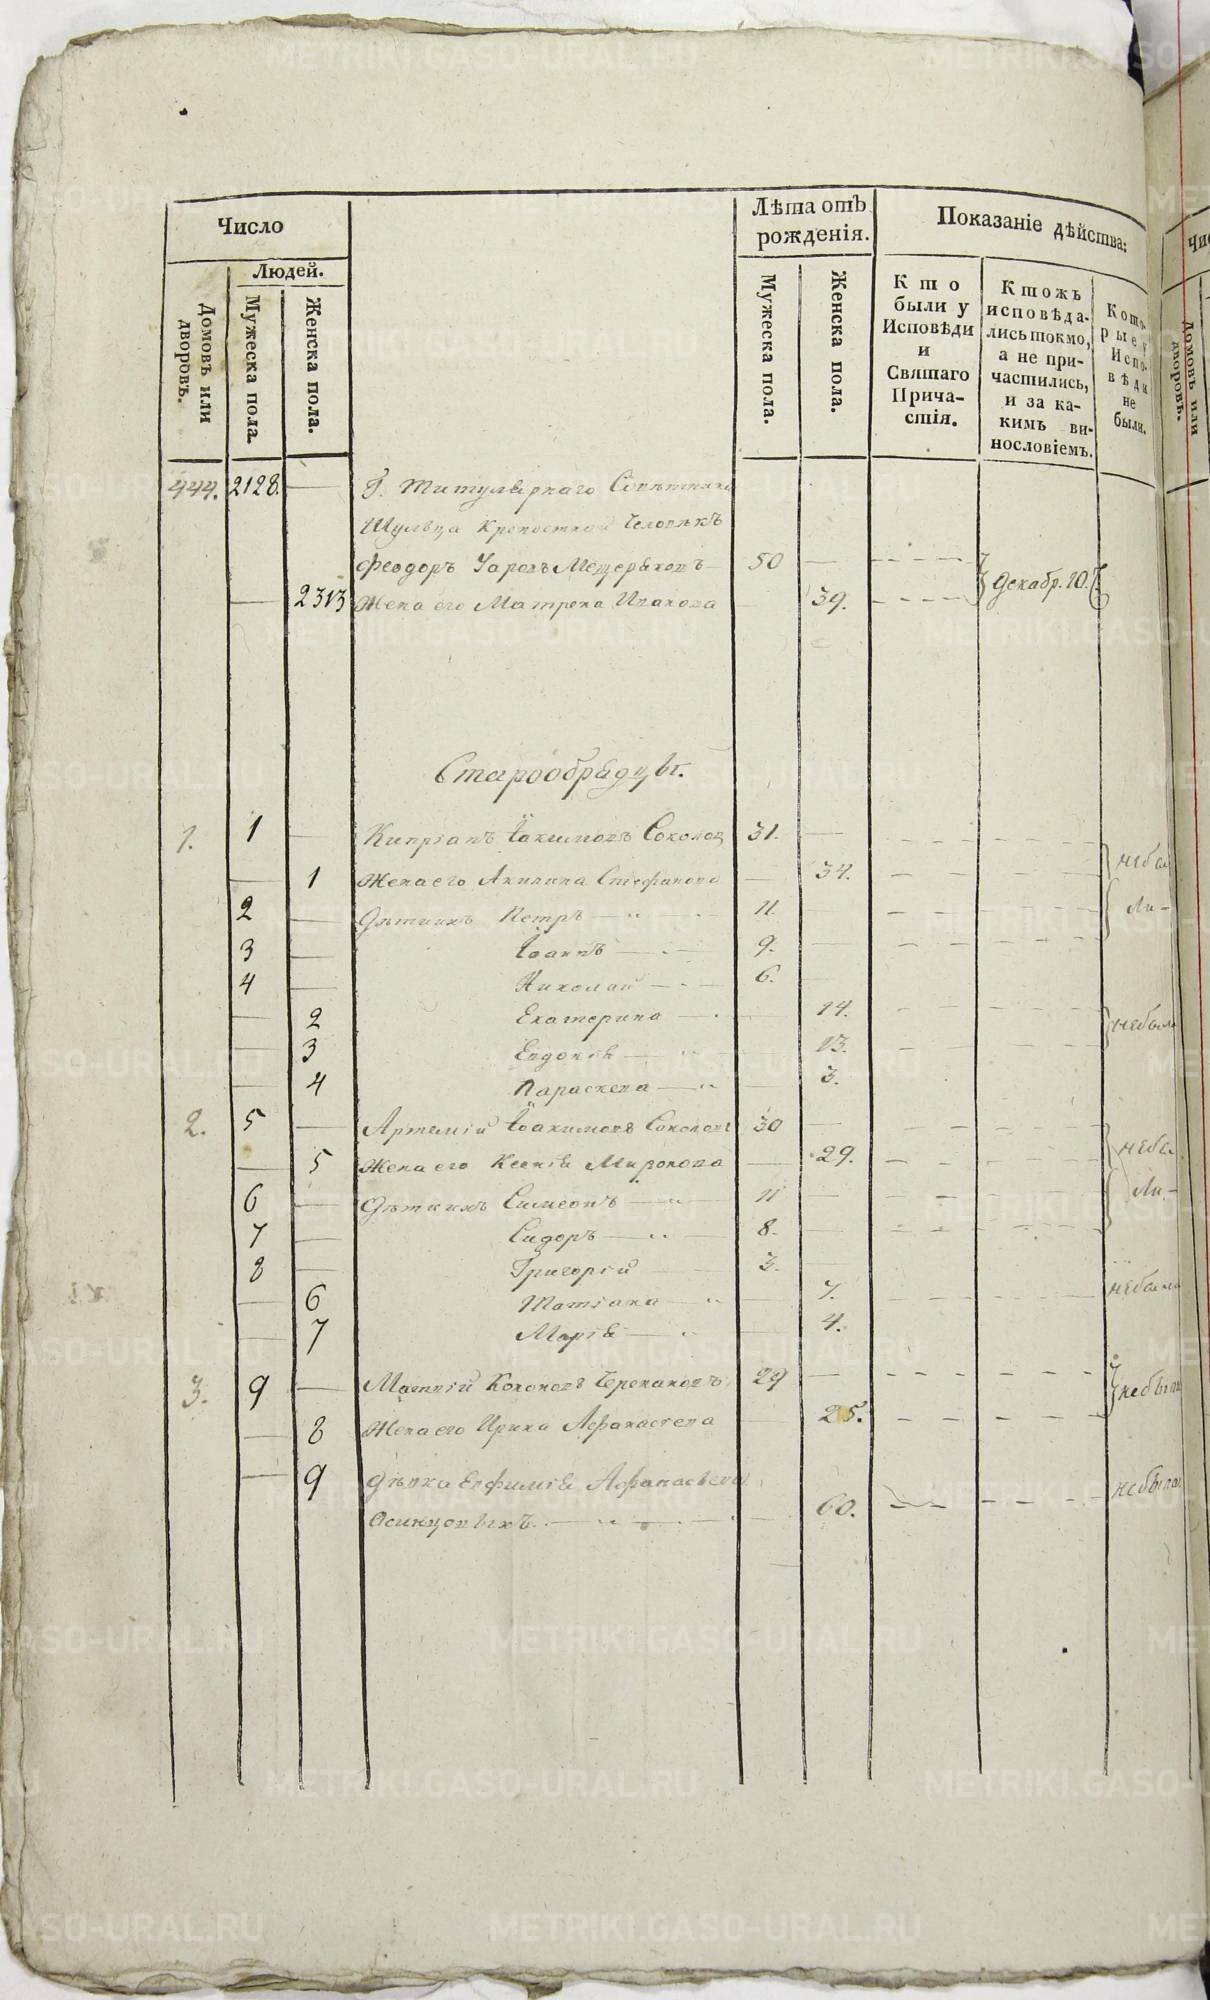 Число
Людей.
Домовъ или дворовъ.
Мужеска пола.
Женска пола.
Лѣта отъ рожденія.
Мужеска пола.
Женска пола.
Показаніе дѣйства:
Кто были у Исповѣди и Святаго Причастія.
Ктожъ исповѣдались токмо, а не причастились, и за какимъ винословіемъ.
Которые у Исповѣди не были.
444. 2128. Г. Титулярнаго Совѣтника
Шульца Крепостной Человѣкъ
Феодоръ Мещеряковъ 50
2313 Жена его Матрена Иванова 39. Декабр. 20.
Старообрядцы.
1. 1 Кипріанъ Іоакимовъ Соколов 31.
1 Жена его Акилина Стефанова 34. небы
2 Дѣти ихъ Петръ 11. ли
3 Іоаннъ 9.
4 Николай 6.
2 Екатерина 14. небыли
3 Евдокія 13.
4 Параскева 3.
2. 5 Артемій Іоакимовъ Соколовъ 30
5 Жена его Ксенія Миронова 29. небы
6 Дѣти ихъ Симеонъ 11 ли
7 Сидоръ 8.
8 Григорій 3.
6 Татіана 7. небыли
7 Марія 4.
3. 9 Матвій Кононовъ Черепановъ 29 небыли
8 Жена его Ирина Афанасіева 25.
9 Дѣвка Евфимія Афанасьева небыла
Осинцовыхъ 60.
METRIKI.GASO-URAL.RU